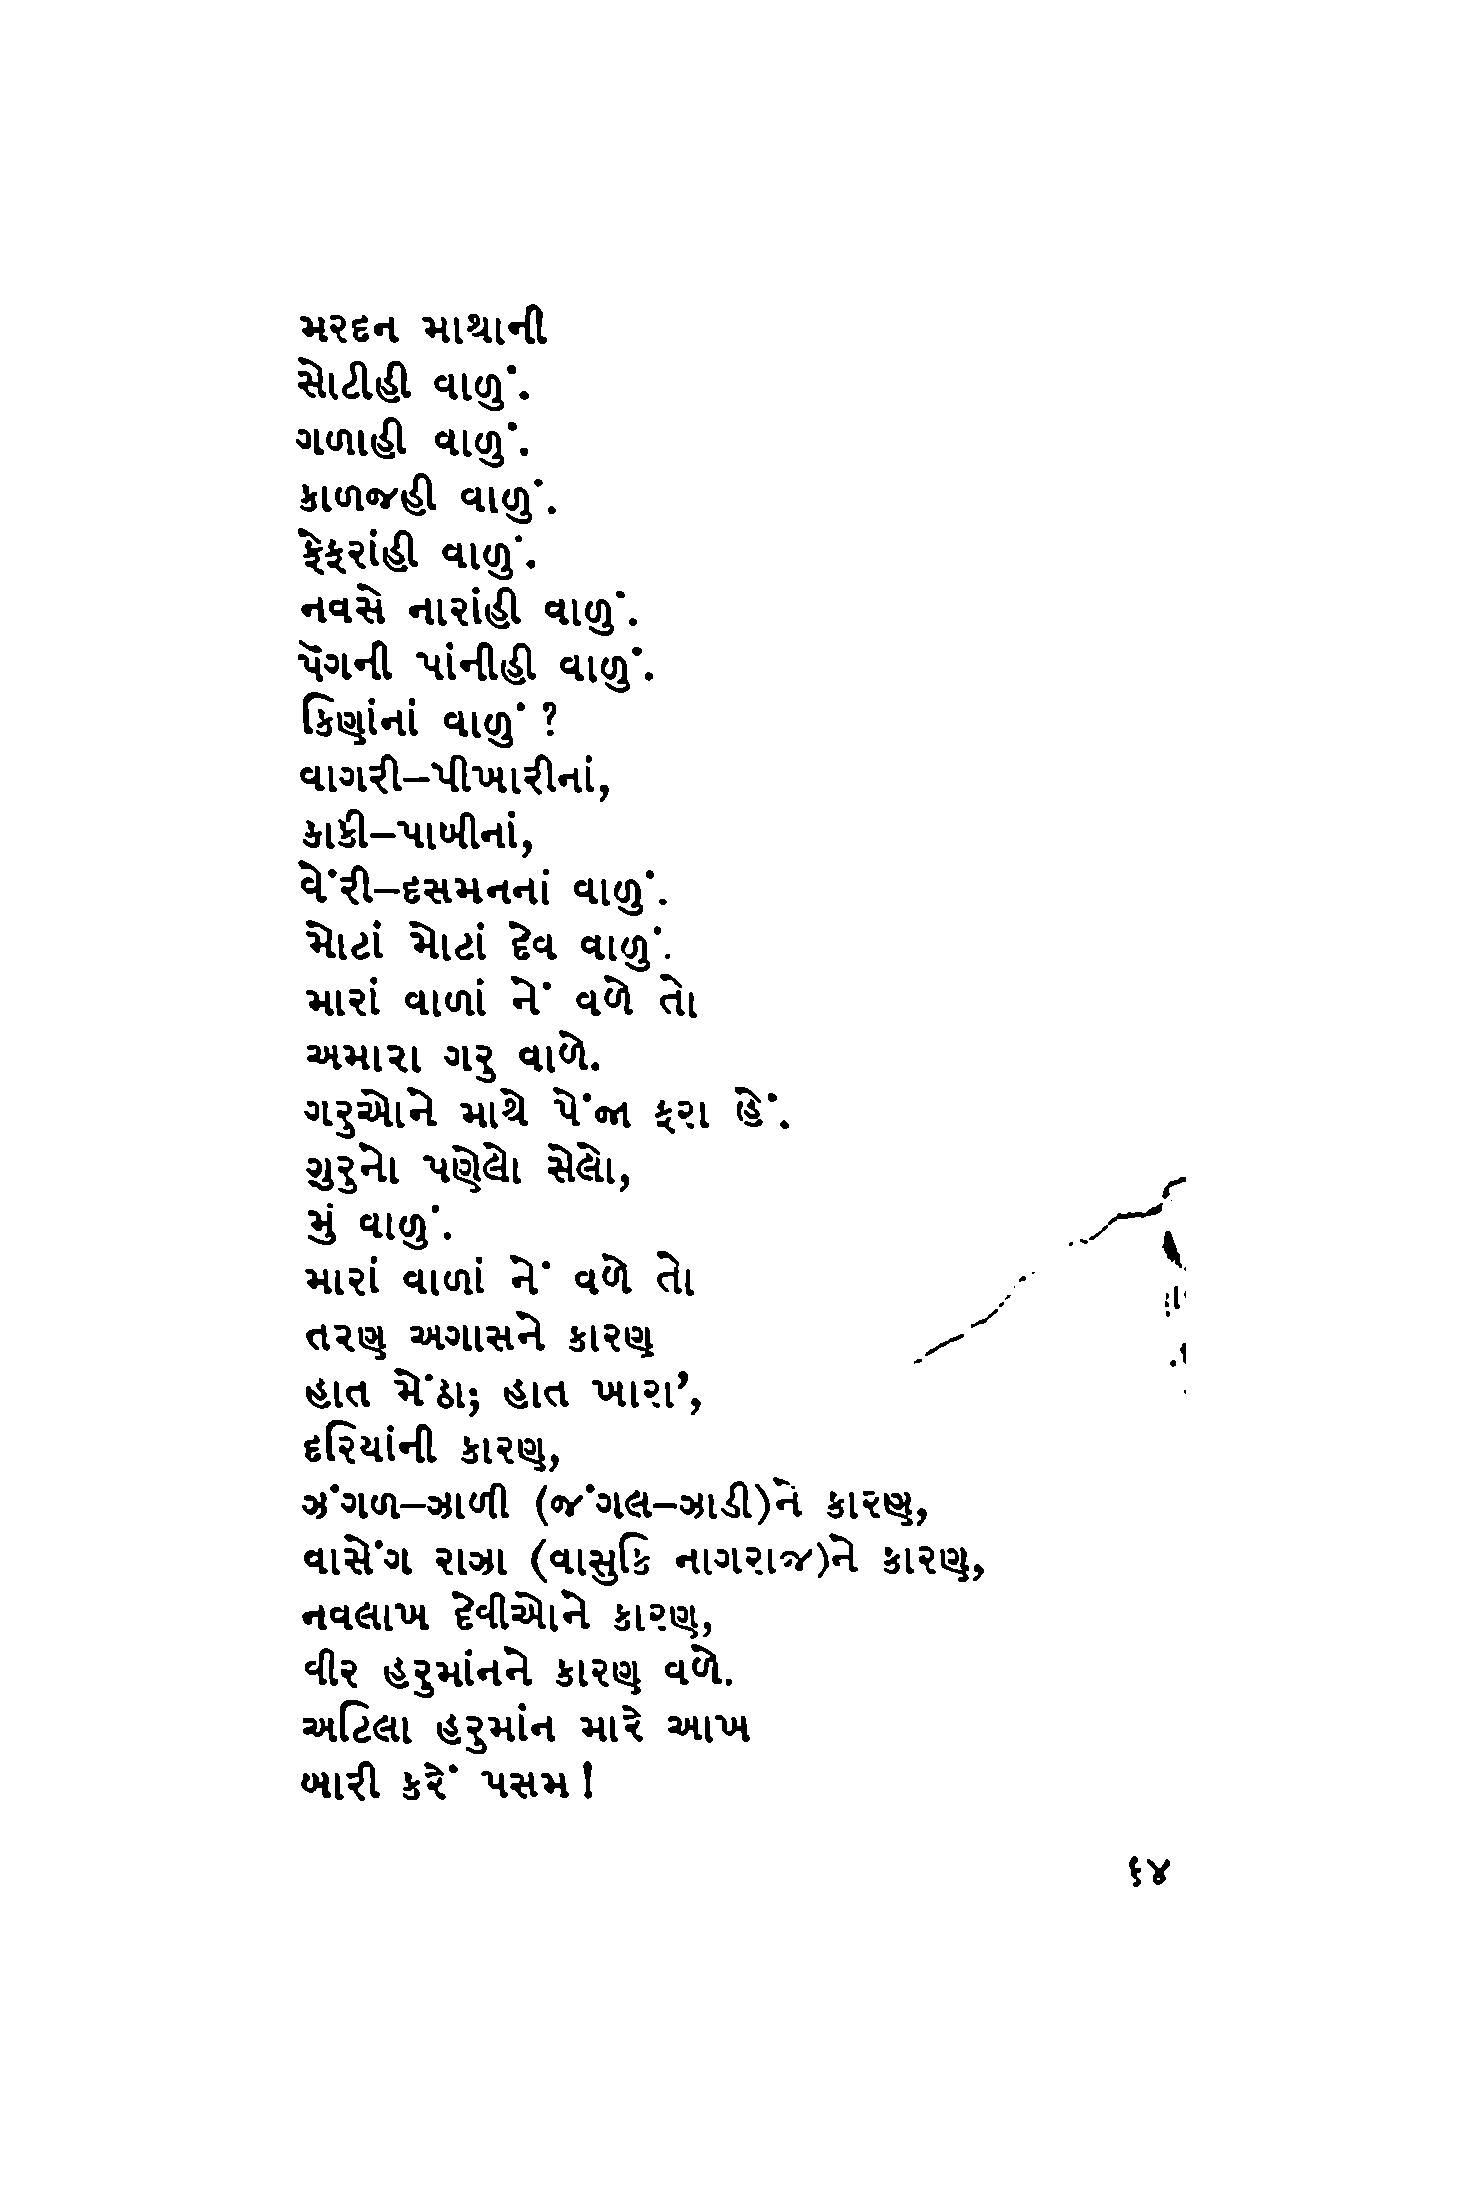 મરદન માથાની
સોટીહી વાળું.
ગળાહી વાળું.
કાળજહી વાળું.
ફેફરાંહી વાળું.
નવસે નારાંહી વાળું.
પૅગની પાંનીહી વાળું.
કિણાંનાં વાળું ?
વાગરી–પીખારીનાં,
કાકી–પાબીનાં,
વેંરી–દસમનનાં વાળું.
મોટાં મોટાં દેવ વાળું.
મારાં વાળાં નેં વળે તો
અમારા ગરુ વાળે.
ગરુઓને માથે પેંજા ફરા હેં.
ગુરુનો પણેલો સેલો,
મું વાળું.
મારાં વાળાં નેં વળે તો
તરણ અગાસને કારણ
હાત મેંઠા; હાત ખારા’,
દરિયાંની કારણ,
ઝંગળ–ઝાળી (જંગલ–ઝાડી)ને કારણ,
વાસેંગ રાઝા (વાસુકિ નાગરાજ)ને કારણ,
નવલાખ દેવીઓને કારણ,
વીર હરુમાંનને કારણ વળે.
અટિલા હરુમાંન મારે આખ
બારી કરેં પસમ !
૬૪